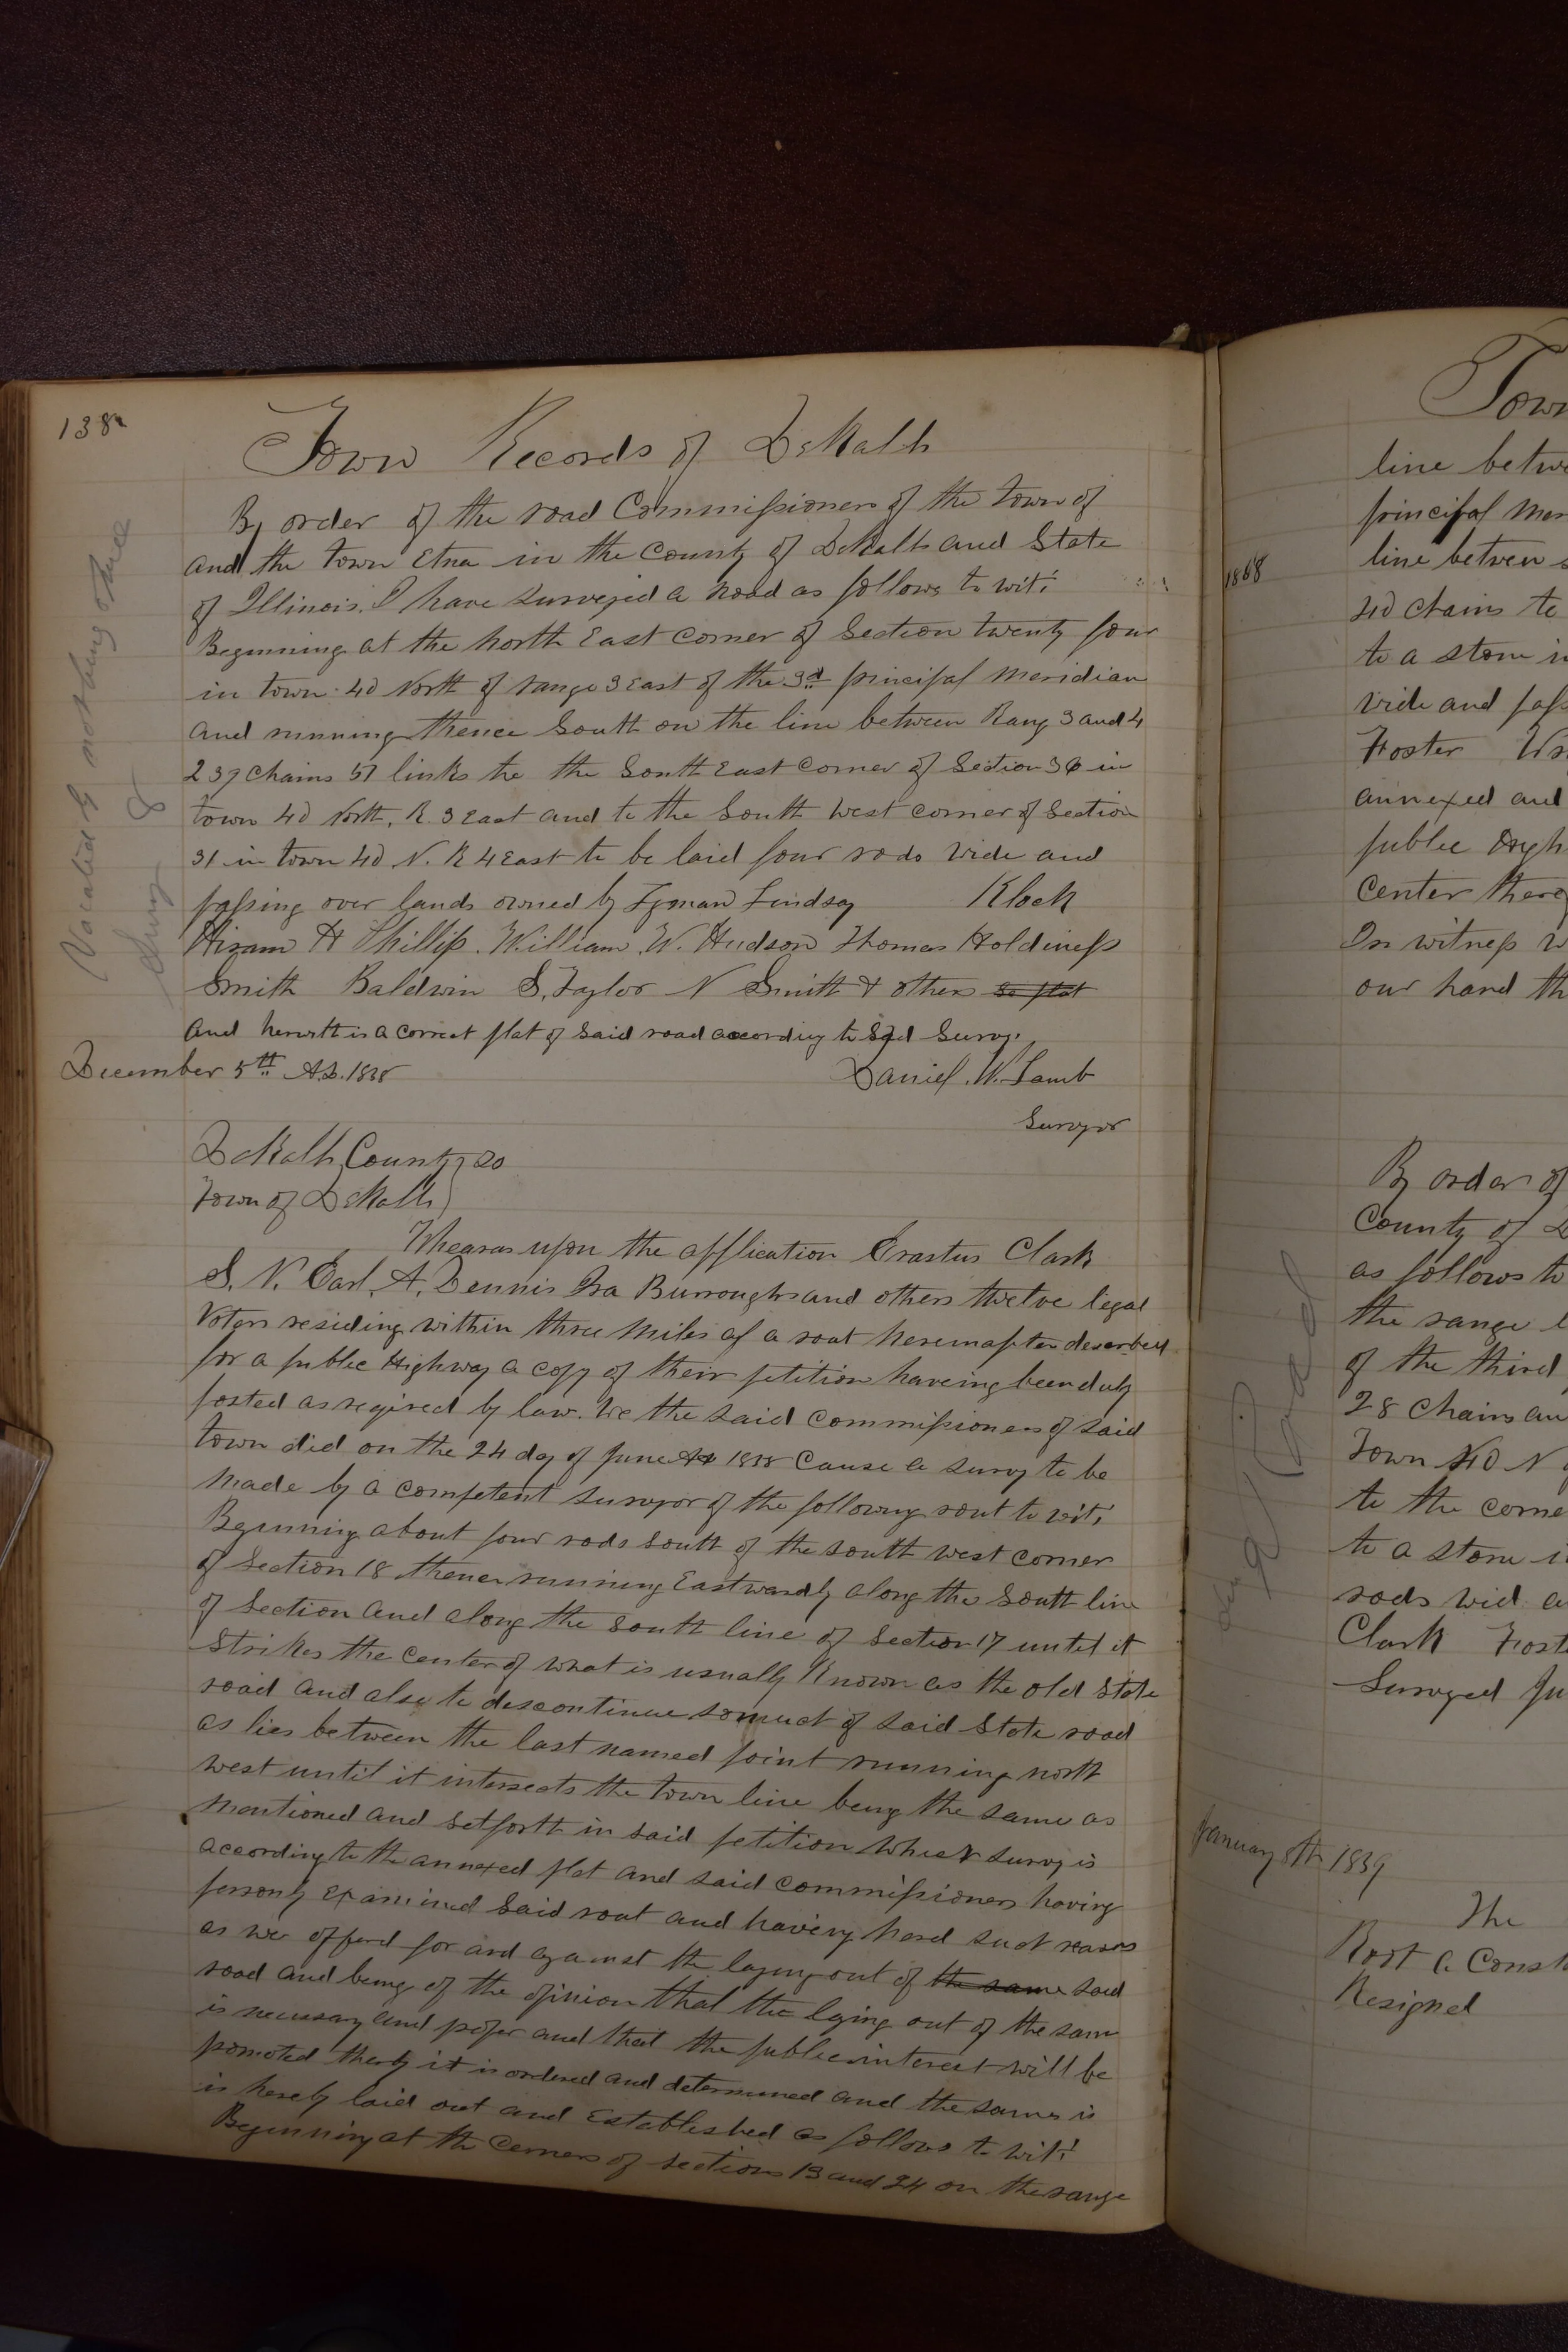 138
Town Records of DeKalb
By order of the road Commissioners of the town of
and the town Etna in the County of DeKalb and State
of Illinois. I have surveyed a road as follows to wit:
Beginning at the North East corner of Section twenty four
in town 40 North of range 3 East of the 3d principal Meridian
and running thence South on the line between Rang 3 and 4
237 Chains 51 links to the South East Corner of Section 36 in
town 40 North, R. 3 East and to the South West corner of Section
31 in town 40 N. R 4 East to be laid four rods wide and
passing over lands owned by Lyman Lindsay Klock
Hiram H Phillips. William W. Hudson Thomas Holdiness
Smith Baldwin S. Taylor N Smith & others
and herewith is a correct plat of said road according to Said Survey
December 5th A.D. 18
Daniel W. Lamb
Surveyor
DeKalb County
Town of DeKalb
Whearas upon the application Erastus Clark
S. N. Earl, A. Dennis Ira Burroughs and others twelve legal
Voters residing within three miles of a rout hereinafter described
for a public Highway a copy of their petition haveing been duly
posted as reqired by law. We the said Commissioners of said
town did on the 24 day of June 18 Cause a survey to be
made by a competent surveyor of the following rout to wit:
Beginning about four rods South of the South west corner
of Section 18 thence running Eastwardly along the South line
of Section and along the South line of Section 17 until it
Strikes the Center of what is usually Known as the old State
road and also to descontinue so much of said State road
as lies between the last named point running north
west until it intersects the town line being the same as
mentioned and setforth in said petition which survey is
according to the annexed plat and said commissioners having
personly Examined Said rout and having herd such reasons
as were offerd for and against the laying out of the same said
road and being of the opinion that the laying out of the same
is necessary and proper and that the public interest will be
promoted therby it is ordered and determined and the same is
is hereby laid out and Established as follows to wit:
Beginning at the Corners of sections 13 and 24 on the range
Town
line betwe
principal Mer
line betwen s
40 Chains to
to a stone in
wide and pass
Foster
annexed and
public High
Center there
In witness w
our hand th
By order of
County of D
as follows to
the range l
of the third
28 Chains an
Town 40 N
to the corne
to a stone i
rods wid a
Clark Foste
Surveyed Ju
January 8th 1839
The
Root a Const
Resigned